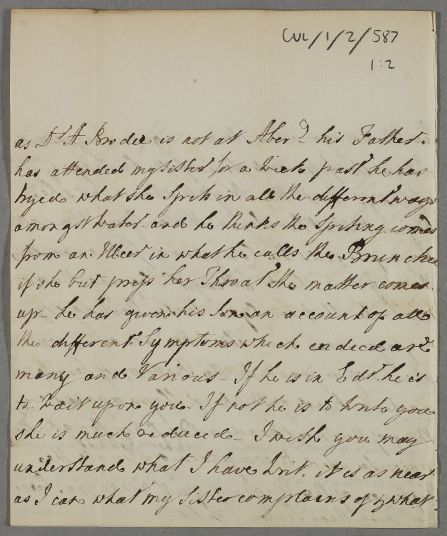 CUL/1/2/587
1:2
as Dr. A Brodie is not at Aberd his Father
has attended my Sister for a Week past he has
tryed what she Spits in all the different ways
amongst water and he thinks the Spitting comes
from an Ulcer in what he calls the Brunchee
if she but press her Throat the matter comes
up he has given his Son an account of all
the different Symptoms which indeed are
many and Various - If he is in Edr. he is
to Wait upon you - If not he is to Write you
she is much reduced - I wish you may
understand what I have writ. it is as near
as I can what my Sister complains of & what